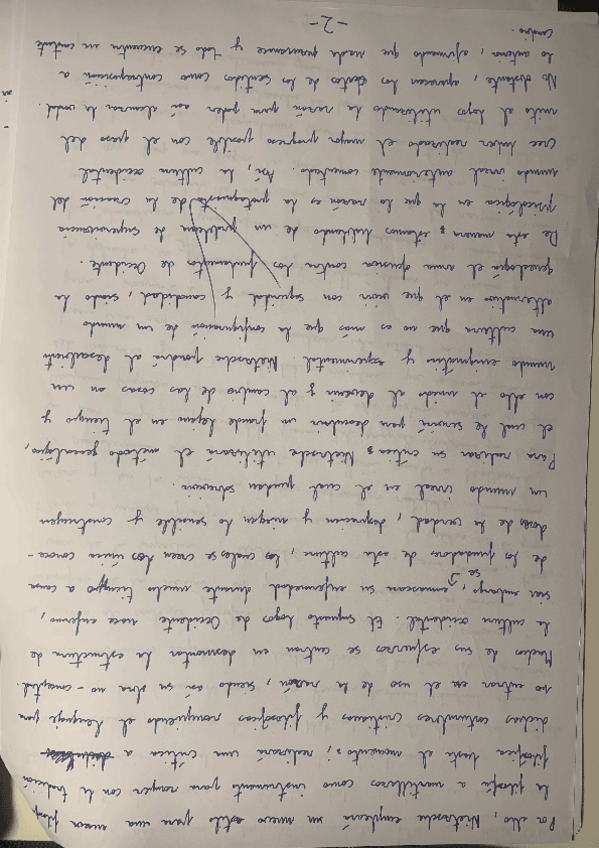 Por ello, Nietzsche empleará un nuevo estilo para una nueva
la filosofía a martillazos como instrumento para romper con la tradición
filosófica hasta el momento; realizará una crítica a
dichas costumbres cristianas y filosóficas rompiendo el lenguaje por
no entrar en el uso de la razón, siendo así su obra no-conceptual.
Muchos de sus esfuerzos se centran en desmontar la estructura de
la cultura occidental. El supuesto logos de Occidente nace enfermo,
sin embargo, se enmascara su enfermedad durante mucho tiempo a causa
de los fundadores de esta cultura, los cuales se creen los únicos conoce-
dores de la verdad, desprecian y niegan lo sensible y construyen
un mundo irreal en el cual puedan sobrevivir.
Para realizar su crítica, Nietzsche utilizará el método genealógico,
el cual le servirá para descubrir un fraude lejano en el tiempo y
con ello el miedo al devenir y al cambio de las cosas en un
mundo enigmático y experimental. Nietzsche pondrá al descubierto
una cultura que no es más que la configuración de un mundo
alternativo en el que vivir con seguridad y comodidad, siendo la
genealogía el arma ofensiva contra los fundamentos de Occidente.
De esta manera, estamos hablando de un problema de supervivencia
psicológica en la que la razón es la protagonista de la creación del
mundo irreal anteriormente comentado. Así, la cultura occidental
cree haber realizado el mayor progreso posible con el paso del
mito al logos utilizando la razón para poder así alcanzar la verdad.
No obstante, aparecen los datos de los sentidos como contraposición a
lo anterior, afirmando que nada permanece y todo se encuentra en constante
cambio.
-2-